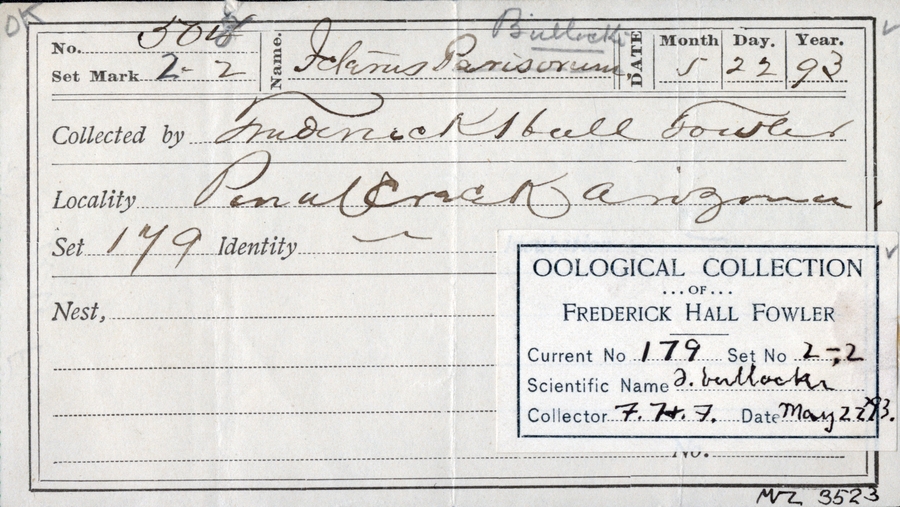 OK
Bullocki
No. 508 Name. Icterus Parisorum, DATE Month Day. Year.
Set Mark 2-2 5 22 93
Collected by Frederick Hall Fowler
Locality Pinal Creek Arizona.
Set 179 Identity —
Nest,
OOLOGICAL COLLECTION
...OF...
FREDERICK HALL FOWLER
Current No 179 Set No 2-2
Scientific Name I. bullocki
Collector F. H. F. Date May 22 '93.
No.
MVZ 3523